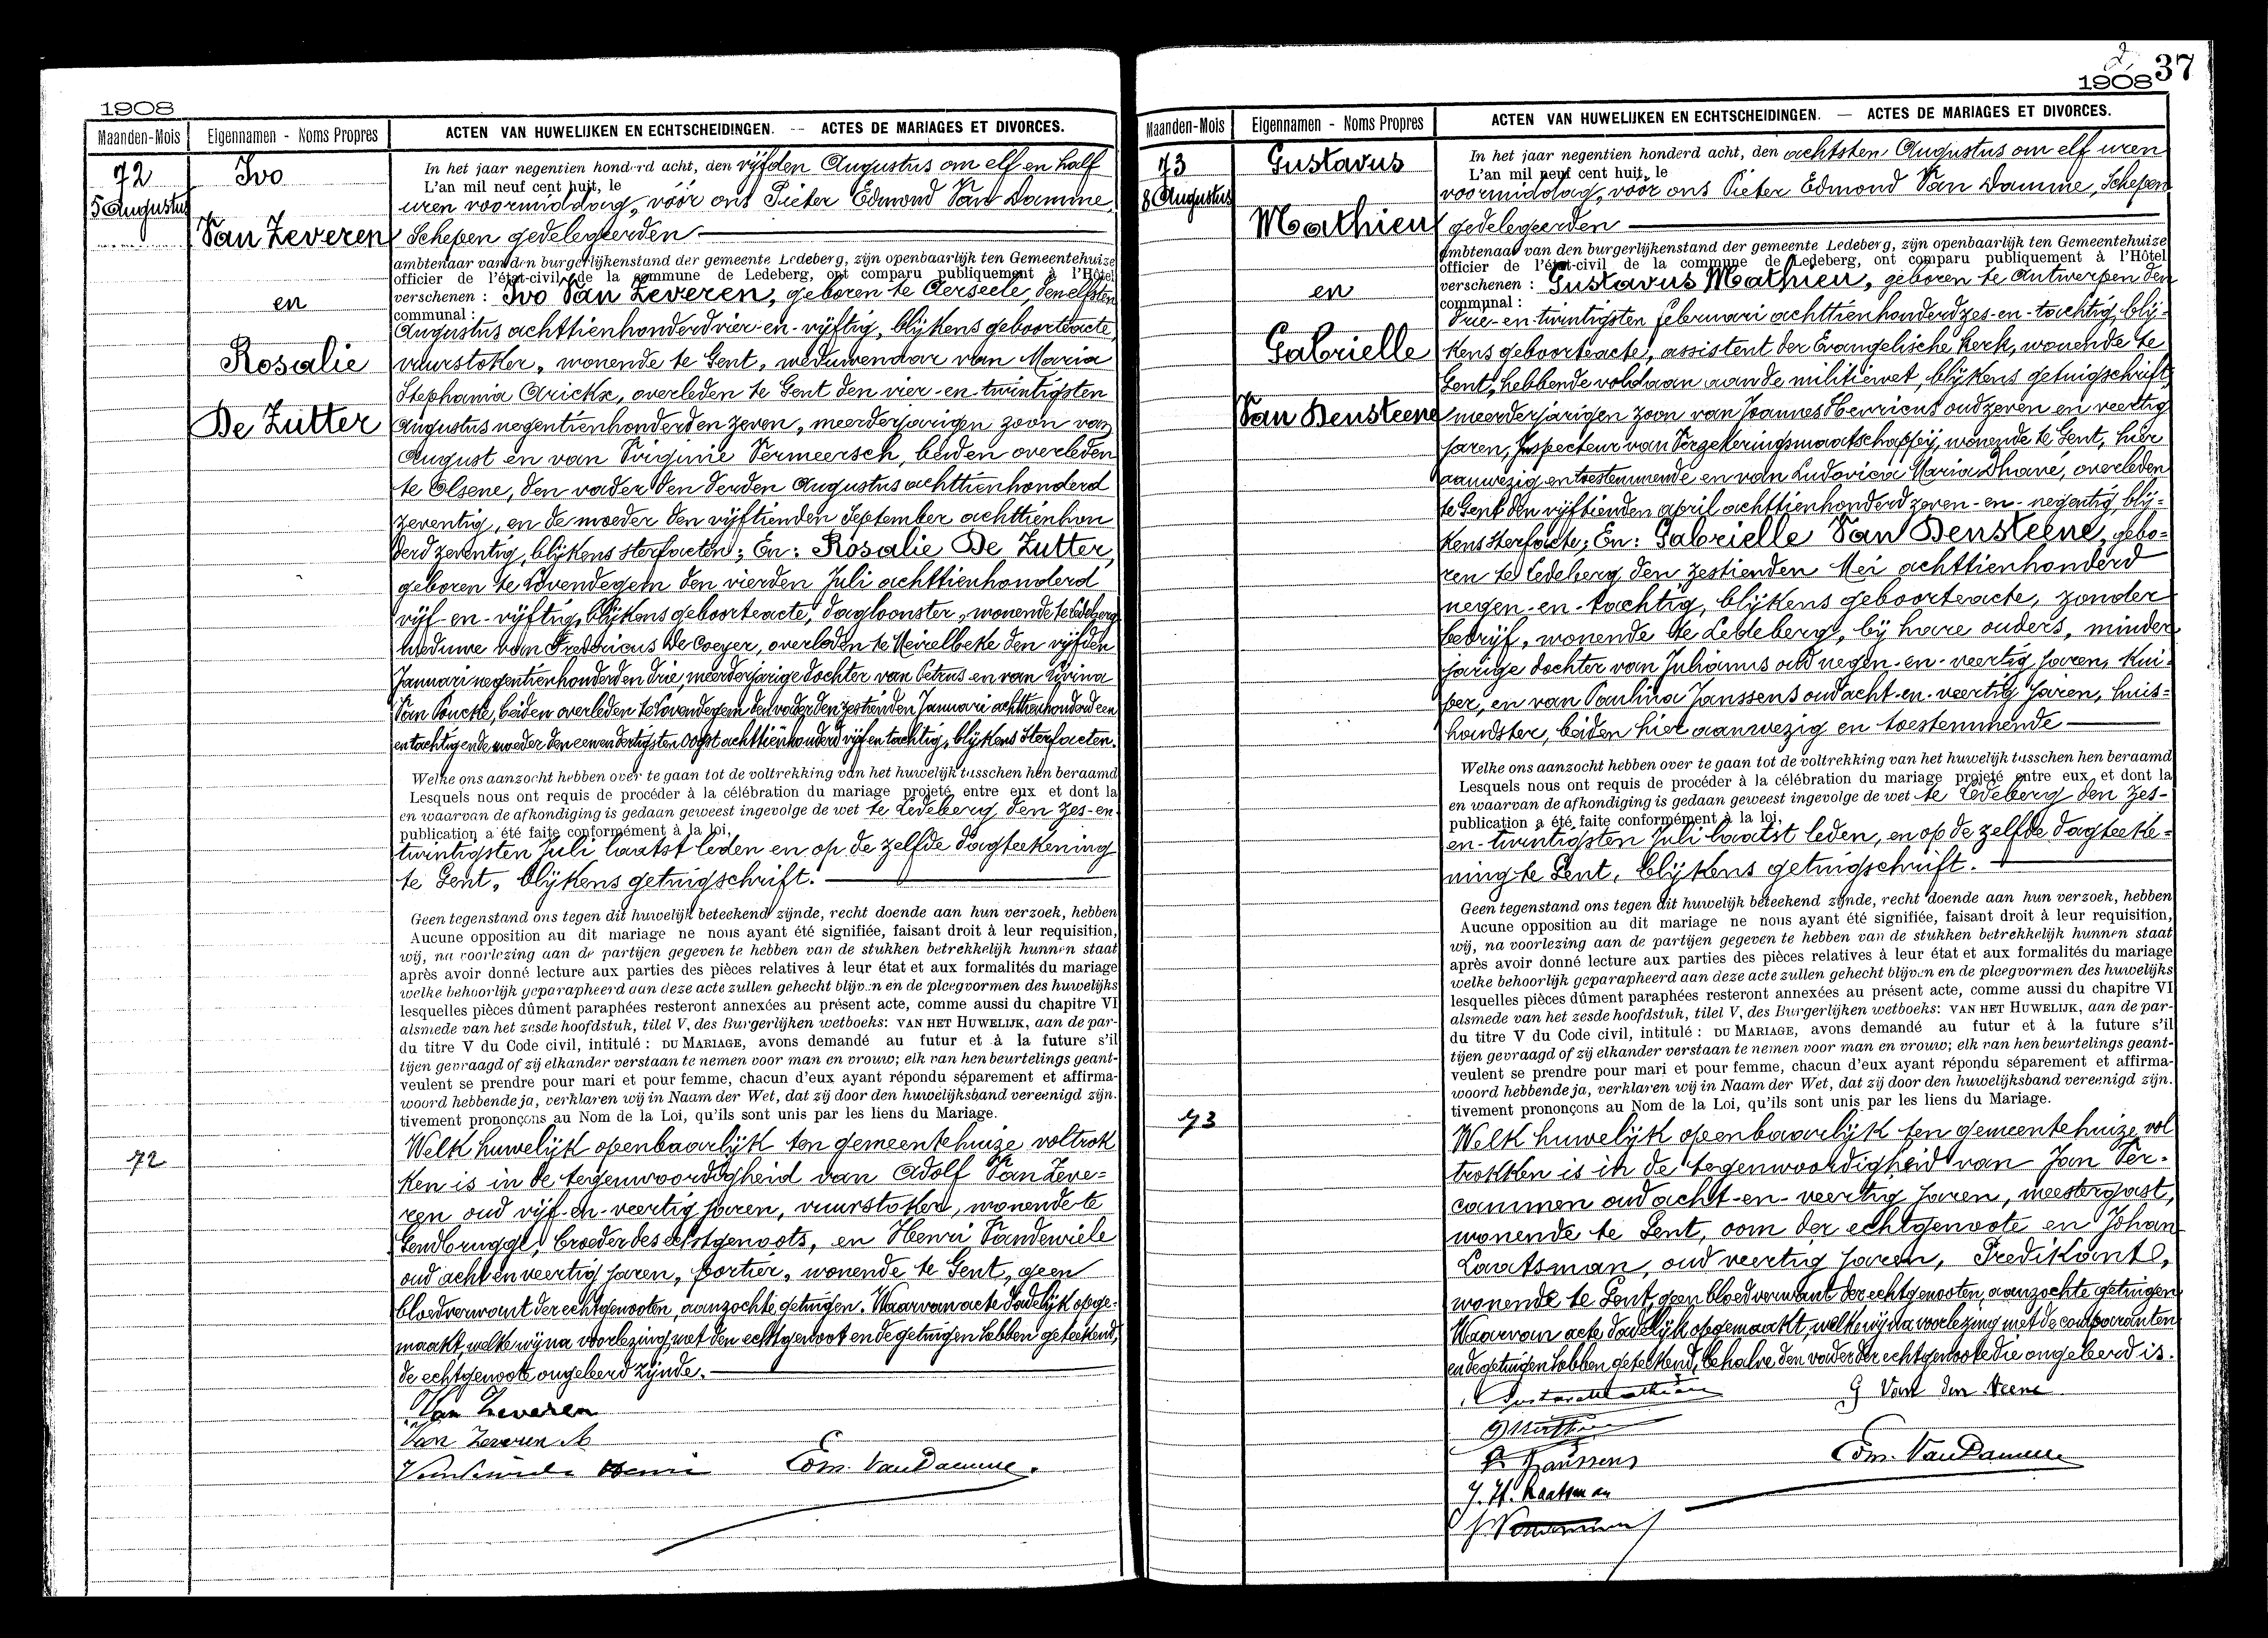 1908
Maanden-Mois
Eigennamen - Noms Propres
ACTEN VAN HUWELIJKEN EN ECHTSCHEIDINGEN. — ACTES DE MARIAGES ET DIVORCES.
72
5 Augustus
Ivo
Van Zeveren
en
Rosalie
De Zutter
72
In het jaar negentien honderd acht, den vijfden Augustus om elf en half
L'an mil neuf cent huit, le
uren voormiddag, vóór ons Pieter Edmond Van Damme,
Schepen gedelegeerden
ambtenaar van den burgerlijkenstand der gemeente Ledeberg, zijn openbaarlijk ten Gemeentehuize
officier de l'état-civil de la commune de Ledeberg, ont comparu publiquement à l'Hôtel
verschenen : Ivo Van Zeveren, geboren te Aerseele, den elfsten
communal :
Augustus achttienhonderd vier-en-vijftig, blijkens geboorteacte,
vuurstoker, wonende te Gent, weduwenaar van Maria
Stephania Arickx, overleden te Gent den vier-en-twintigsten
Augustus negentienhonderd en zeven, meerderjarigen zoon van
August en van Virginie Vermeersch, beiden overleden
te Olsene, den vader den derden Augustus achttienhonderd
zeventig, en de moeder den vijftienden September achttienhon
derd zeventig, blijkens sterfacten; En: Rosalie De Zutter,
geboren te Lovendegem den vierden Juli achttienhonderd
vijf-en-vijftig, blijkens geboorteacte, dagloonster, wonende te Ledeberg
weduwe van Fredericus De Coeyer, overleden te Meirelbeke den vijfden
Januari negentienhonderd en drie, meerderjarige dochter van Petrus en van Livina
Van Poucke, beiden overleden te Lovendegem den vader den zestienden Januari achttienhonderd een
en tachtig en de moeder den een en dertigsten Oogst achttienhonderd vijf en tachtig, blijkens sterfacten.
Welke ons aanzocht hebben over te gaan tot de voltrekking van het huwelijk tusschen hen beraamd
Lesquels nous ont requis de procéder à la célébration du mariage projeté entre eux et dont la
en waarvan de afkondiging is gedaan geweest ingevolge de wet te Ledeberg den zes-en
publication a été faite conformément à la loi,
twintigsten Juli laatst leden en op de zelfde dagteekening
te Gent, blijkens getuigschrift.
Geen tegenstand ons tegen dit huwelijk beteekend zijnde, recht doende aan hun verzoek, hebben
Aucune opposition au dit mariage ne nous ayant été signifiée, faisant droit à leur requisition,
wij, na voorlezing aan de partijen gegeven te hebben van de stukken betrekkelijk hunnen staat
après avoir donné lecture aux parties des pièces relatives à leur état et aux formalités du mariage
welke behoorlijk geparapheerd aan deze acte zullen gehecht blijven en de pleegvormen des huwelijks
lesquelles pièces dûment paraphées resteront annexées au présent acte, comme aussi du chapitre VI
alsmede van het zesde hoofdstuk, titel V, des Burgerlijken wetboeks: VAN HET HUWELIJK, aan de par-
du titre V du Code civil, intitulé : DU MARIAGE, avons demandé au futur et à la future s'il
tijen gevraagd of zij elkander verstaan te nemen voor man en vrouw; elk van hen beurtelings geant-
veulent se prendre pour mari et pour femme, chacun d'eux ayant répondu séparement et affirma-
woord hebbende ja, verklaren wij in Naam der Wet, dat zij door den huwelijksband vereenigd zijn.
tivement prononçons au Nom de la Loi, qu'ils sont unis par les liens du Mariage.
Welk huwelijk openbaarlijk ten gemeentehuize voltrok
ken is in de tegenwoordigheid van Adolf Van Zeve=
ren oud vijf-en-veertig jaren, vuurstoker, wonende te
Gendbrugge, broeder des echtgenoots, en Henri Vandewiele
oud acht en veertig jaren, portier, wonende te Gent, geen
bloedverwant der echtgenooten, aanzochte getuigen. Waarvan acte dadelijk opge-
maakt, welke wij na voorlezing, met den echtgenoot en de getuigen hebben geteekend,
de echtgenoote ongeleerd zijnde.
Van Zeveren
Van Zeveren A
Vandewiele Henri
Edm. Van Damme.
2
1908 37
Maanden-Mois
Eigennamen - Noms Propres
ACTEN VAN HUWELIJKEN EN ECHTSCHEIDINGEN. — ACTES DE MARIAGES ET DIVORCES.
73
8 Augustus
Gustavus
Mathieu
en
Gabrielle
Van Densteene
73
In het jaar negentien honderd acht, den achtsten Augustus om elf uren
L'an mil neuf cent huit, le
voormiddag, vóór ons Pieter Edmond Van Damme, Schepen
gedelegeerden
ambtenaar van den burgerlijkenstand der gemeente Ledeberg, zijn openbaarlijk ten Gemeentehuize
officier de l'état-civil de la commune de Ledeberg, ont comparu publiquement à l'Hôtel
verschenen : Gustavus Mathieu, geboren te Antwerpen den
communal :
drie-en-twintigsten februari achttienhonderd zes-en-tachtig, blij-
kens geboorteacte, assistent der Evangelische Kerk, wonende te
Gent, hebbende voldaan aan de militiewet, blijkens getuigschrift,
meerderjarigen zoon van Joannes Henricus oud zeven en veertig
jaren, Inspecteur van Verzekeringsmaatschappij, wonende te Gent, hier
aanwezig en toestemmende en van Ludovica Maria Dhavé, overleden
te Gent den vijftienden april achttienhonderd zeven-en-negentig, blij=
kens sterfacte; En: Gabrielle Van Densteene, gebo=
ren te Ledeberg den zestienden Mei achttienhonderd
negen-en-tachtig, blijkens geboorteacte, zonder
bedrijf, wonende te Ledeberg, bij hare ouders, minder
jarige dochter van Julianus oud negen-en-veertig jaren, kui-
per, en van Paulina Janssens oud acht-en-veertig jaren, huis=
houdster, beiden hier aanwezig en toestemmende
Welke ons aanzocht hebben over te gaan tot de voltrekking van het huwelijk tusschen hen beraamd
Lesquels nous ont requis de procéder à la célébration du mariage projeté entre eux et dont la
en waarvan de afkondiging is gedaan geweest ingevolge de wet te Ledeberg den zes-
publication a été faite conformément à la loi,
en-twintigsten Juli laatst leden, en op de zelfde dagteeke=
ning te Gent, blijkens getuigschrift.
Geen tegenstand ons tegen dit huwelijk beteekend zijnde, recht doende aan hun verzoek, hebben
Aucune opposition au dit mariage ne nous ayant été signifiée, faisant droit à leur requisition,
wij, na voorlezing aan de partijen gegeven te hebben van de stukken betrekkelijk hunnen staat
après avoir donné lecture aux parties des pièces relatives à leur état et aux formalités du mariage
welke behoorlijk geparapheerd aan deze acte zullen gehecht blijven en de pleegvormen des huwelijks
lesquelles pièces dûment paraphées resteront annexées au présent acte, comme aussi du chapitre VI
alsmede van het zesde hoofdstuk, titel V, des Burgerlijken wetboeks: VAN HET HUWELIJK, aan de par-
du titre V du Code civil, intitulé : DU MARIAGE, avons demandé au futur et à la future s'il
tijen gevraagd of zij elkander verstaan te nemen voor man en vrouw; elk van hen beurtelings geant-
veulent se prendre pour mari et pour femme, chacun d'eux ayant répondu séparement et affirma-
woord hebbende ja, verklaren wij in Naam der Wet, dat zij door den huwelijksband vereenigd zijn.
tivement prononçons au Nom de la Loi, qu'ils sont unis par les liens du Mariage.
Welk huwelijk openbaarlijk ten gemeentehuize vol
trokken is in de tegenwoordigheid van Jan Ver-
cammen oud acht-en-veertig jaren, meestergast,
wonende te Gent, oom der echtgenoote en Johan
Laatsman, oud veertig jaren, Predikant,
wonende te Gent, geen bloedverwant der echtgenooten, aanzochte getuigen
Waarvan acte dadelijk opgemaakt, welke wij na voorlezing met de comparanten
en de getuigen hebben geteekend, behalve den vader der echtgenoote die ongeleerd is.
Gustave Mathieu
G Van den Steene
P Janssens
Edm. Van Damme
J. H. Laatsman